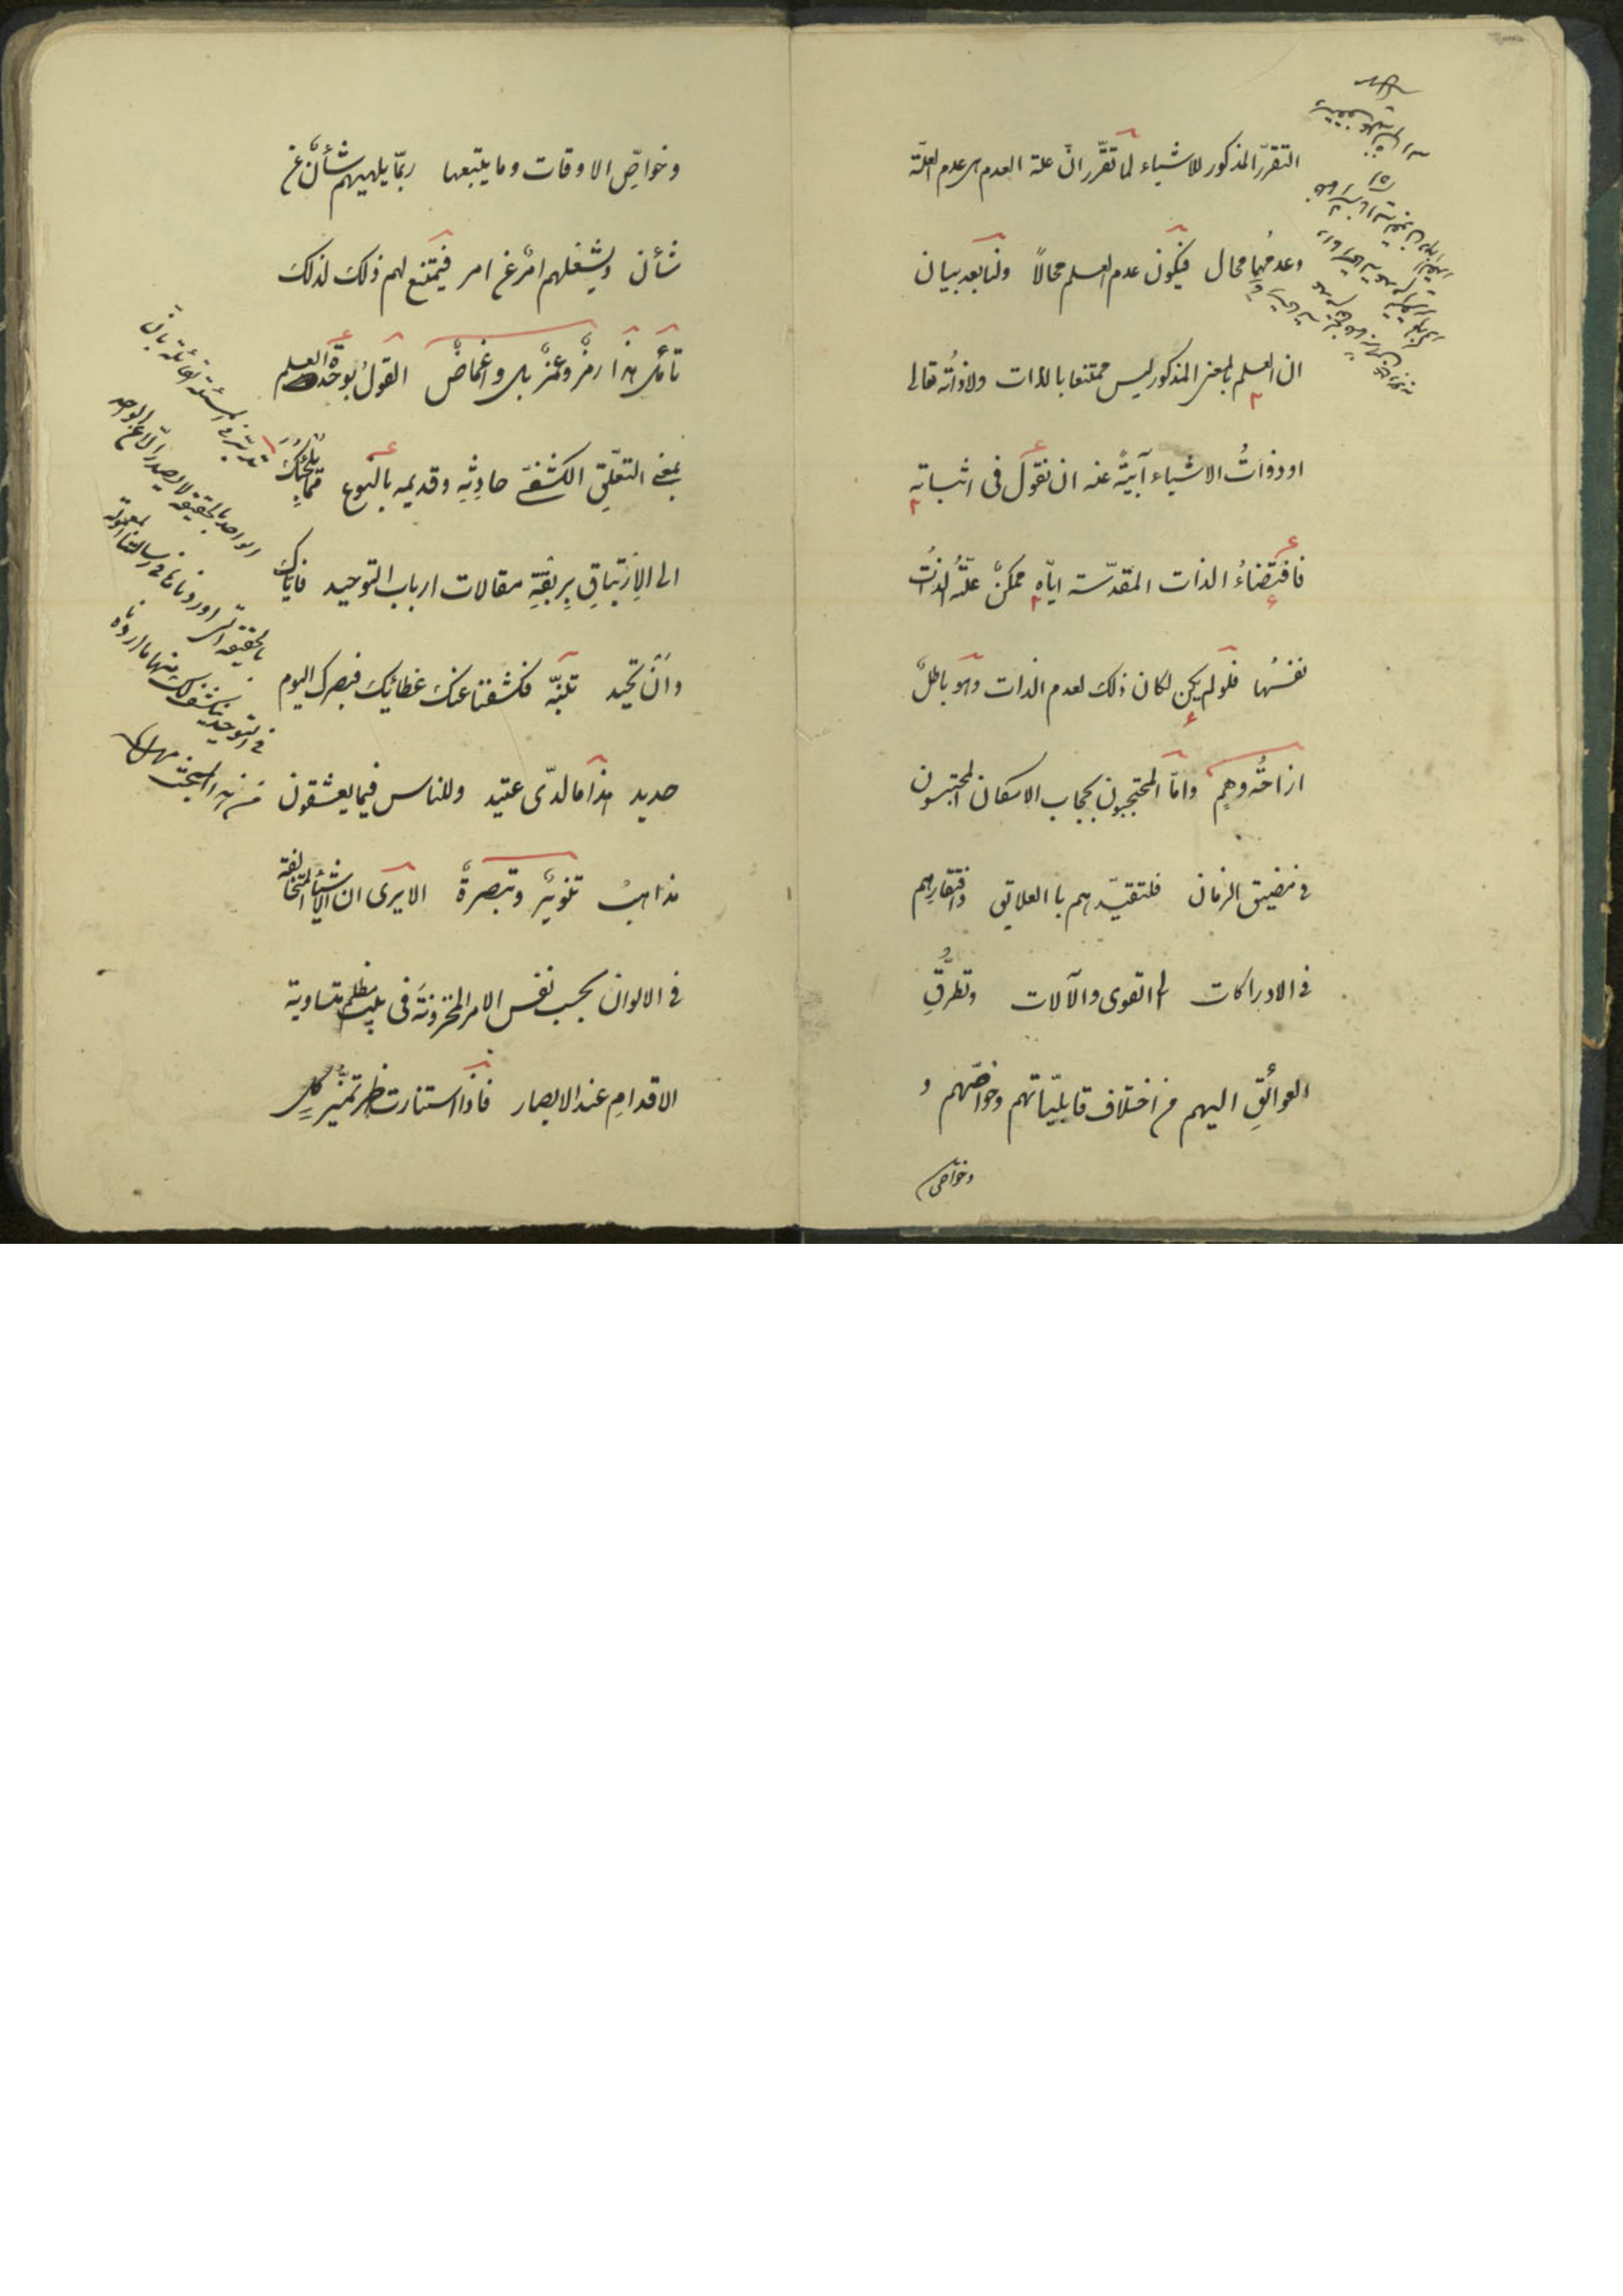 التقرّر المذكور للاشياء لما تقرّر انّ علة العدم هى عدم العلّة
وعدمُهما محال فيكون عدم العلم محالاً ولنا بعد بيان
ان العلم بالمعنى المذكور ليس ممتنعا بالذات ولا ذاتُه تعالى
او ذواتُ الاشياء آبيةً عنه ان نقول فى اثباته
فاقتضاءُ الذات المقدّسة ايّاه ممكنٌ علّتُه الذاتُ
نفسُها فلو لم يكن لكان ذلك لعدم الذات وهو باطلٌ
ازاحةُ وهمٍ وامّا المحتجبون بحجاب الامكان المحتبسون
فى مضيق الزمان فلتقيّدهم بالعلايق وافتقارهم
فى الادراكات الى القوى والآلات وتطرُّقِ
العوائقِ اليهم من اختلاف قابليّاتهم وخواصّهم و
وخواص
وخواصِّ الاوقات وما يتبعها ربّما يلهيهم شأنٌ عن
شأن ويشغلهم امرٌ عن امر فيمتنع لهم ذلك لذلك
تأمّل هذا رمزٌ وغمزٌ بل واغماضٌ القولُ بوحدة العلم
بمعنى التعلّق الكشفىّ حادثِه وقديمه بالنوع ممّا يلجئك
الى الارتباقِ بربقةِ مقالات ارباب التوحيد فاياك
وانْ تحيد تنبّه فكشفنا عنك غطائك فبصرك اليوم
حديد هذا ما لدىّ عتيد وللناس فيما يعشقون
مذاهبُ تنويرٌ وتبصرةٌ الا يرى ان الاشياء المتخالفة
فى الالوان بحسب نفس الامر المخزونةَ فى بيت مظلم متساوية
الاقدامِ عند الابصار فاذا استنارت ظهر تميّز كلٍ
تدبّر فى المسئلة القائلة بانّ
الواحد بالحقيقة لا يصدر الّا عن الواحد
بالحقيقة التى اوردناها فى رسالتنا المعمولة
فى التوحيد ينكشف لك منها ما اردناه
من هذا المبحث منه